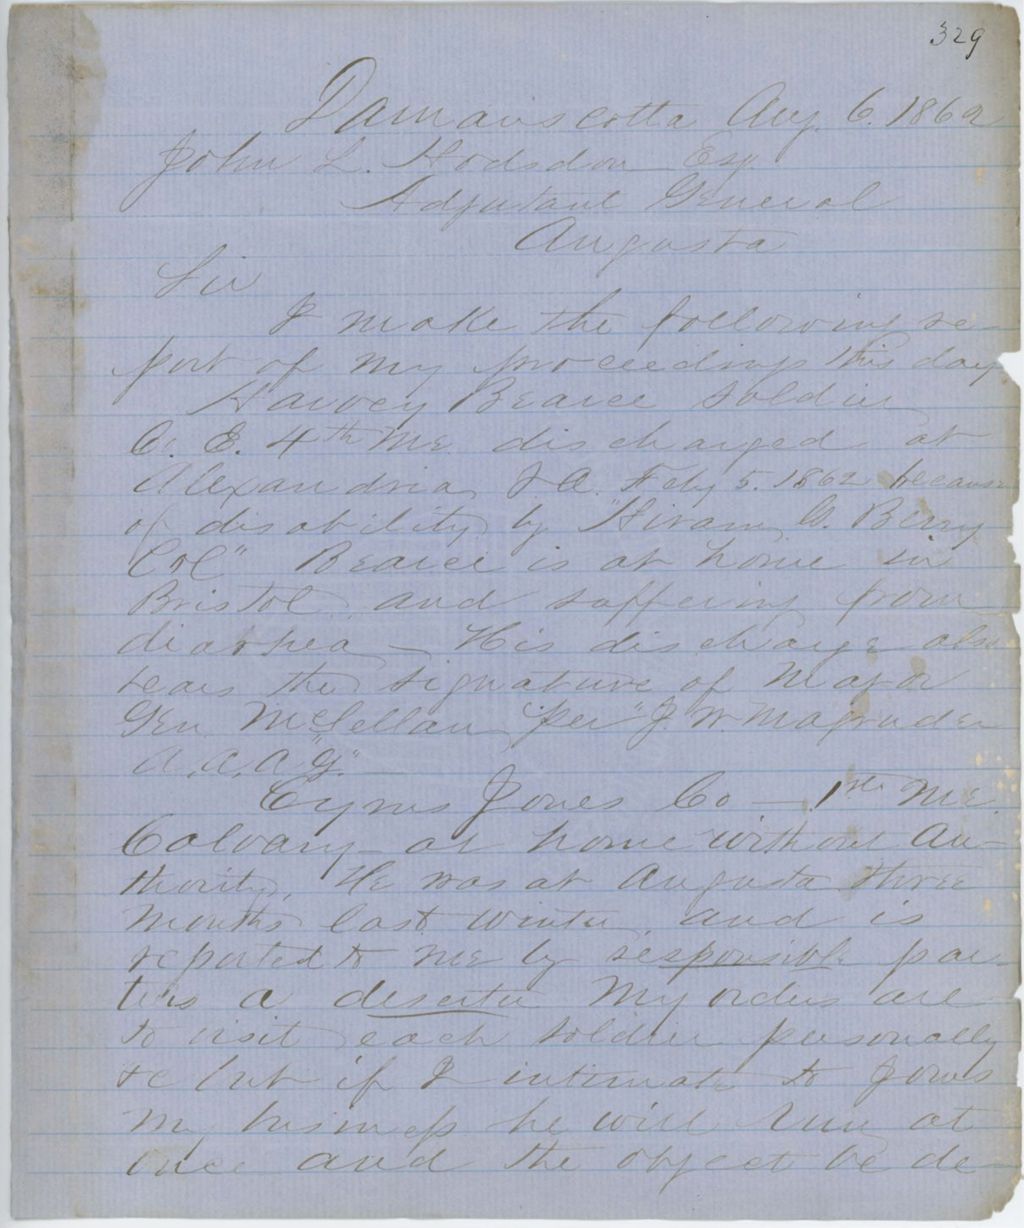 329
Damariscotta Aug. 6. 1862
John L. Hodsdon Esq.
Adjutant General
Augusta
Sir
I make the following re-
port of my proceedings this day
Harvey Bearce Soldier
Co. E. 4th Me. discharged at
Alexandria, Feby 5. 1862 because
of disability by "Hiram G. Berry
Col" Bearce is at home in
Bristol and suffering from
diarhea - His discharge also
bears the signature of Major
Gen McClellan "per" J. W. Magruder
A. A. A. G."
Cyrus Jones Co — 1st Me
Calvary at home without au-
thority. He was at Augusta three
months last winter, and is
reported to me by responsible par-
ties a deserter My orders are
to visit each soldier personally
&c but if I intimate to Jones
my business he will run at
once and the object be de-